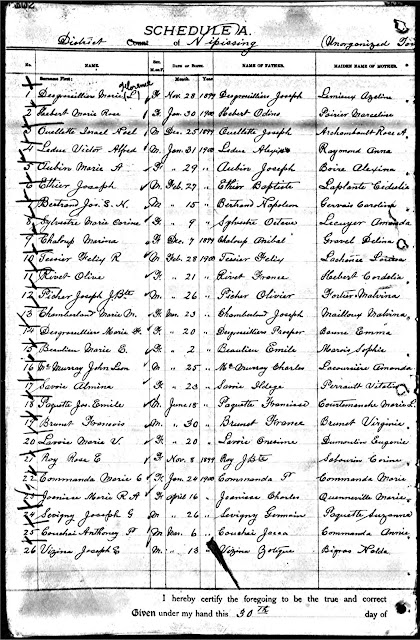 SCHEDULE A.
District of Nipissing (Unorganized
No. Surname First: Sex M. or F. DATE OF BIRTH. NAME OF FATHER. MAIDEN NAME OF MOTHER.
Month Year
Florence
1 Desgroseilliers Marie F. Nov 28 1899 Desgroseilliers Joseph Lemieux Azelina
2 Hebert Marie Rose F. Jan 30 1900 Hebert Poirier
3 Ouellette Israel Noel M Dec 25 1899 Ouellette Joseph Archambault Rose A
4 Leduc Victor Alfred M Jan 31 1900 Leduc Alexis Raymond Anna
5 Aubin Marie A F. " 29 " Aubin Joseph Boire Alexina
6 Ethier Joseph M Feb 27 " Ethier Baptiste Laplante
7 Bertrand Jos. S. N. M " 15 " Bertrand Napoleon Gervais Caroline
8 Sylvestre Marie Corine F. " 9 " Sylvestre Octave Lecuyer Amanda
9 Chaloup Marina F. Dec 7 1899 Chaloup Gravel Delina
10 Tessier Felix R M Feb 28 1900 Tessier Felix Louisa
11 Rivet Olive F. " 21 " Rivet France Hebert Cordelia
12 Picher Joseph J. Bte M. " 26 " Picher Olivier Fortier Malvina
13 Chamberland Marie M. F. 23 " Chamberland Joseph Mailloux Malvina
14 Desgroseilliers Marie F. F. " 20 " Desgroseilliers Prosper Emma
15 Beaulieu Marie E. F. " 2 " Beaulieu Emile Marois Sophie
16 McMurray John Leon M " 25 " McMurray Charles Amanda
17 Savoie Almina F. " 23 " Savoie Perrault
18 Paquette Jos. Emile M June 18 " Paquette Francois Courtemanche Marie L.
19 Brunet Francois M. " 30 " Brunet France Brunet Virginie
20 Lavoie Marie V. F. " 20 " Lavoie Onesime Dumontier Eugenie
21 Roy Rose E F. Nov 8 1899 Roy J. Bte Sabourin Corine
22 Commanda Marie C F. Jan 24 1900 Commanda P. Commanda Marie
23 Janisse Marie R. A F. April 16 " Janisse Charles Quenneville Marie
24 Sevigny Joseph G M " 26 " Sevigny Germain Paquette Suzanne
25 Couchai Anthony P M. 6 Couchai Commanda Annie
26 Vezina Joseph E M " 13 " Vezina Zotique Bigras
I hereby certify the foregoing to be the true and correct
Given under my hand this 30th day of